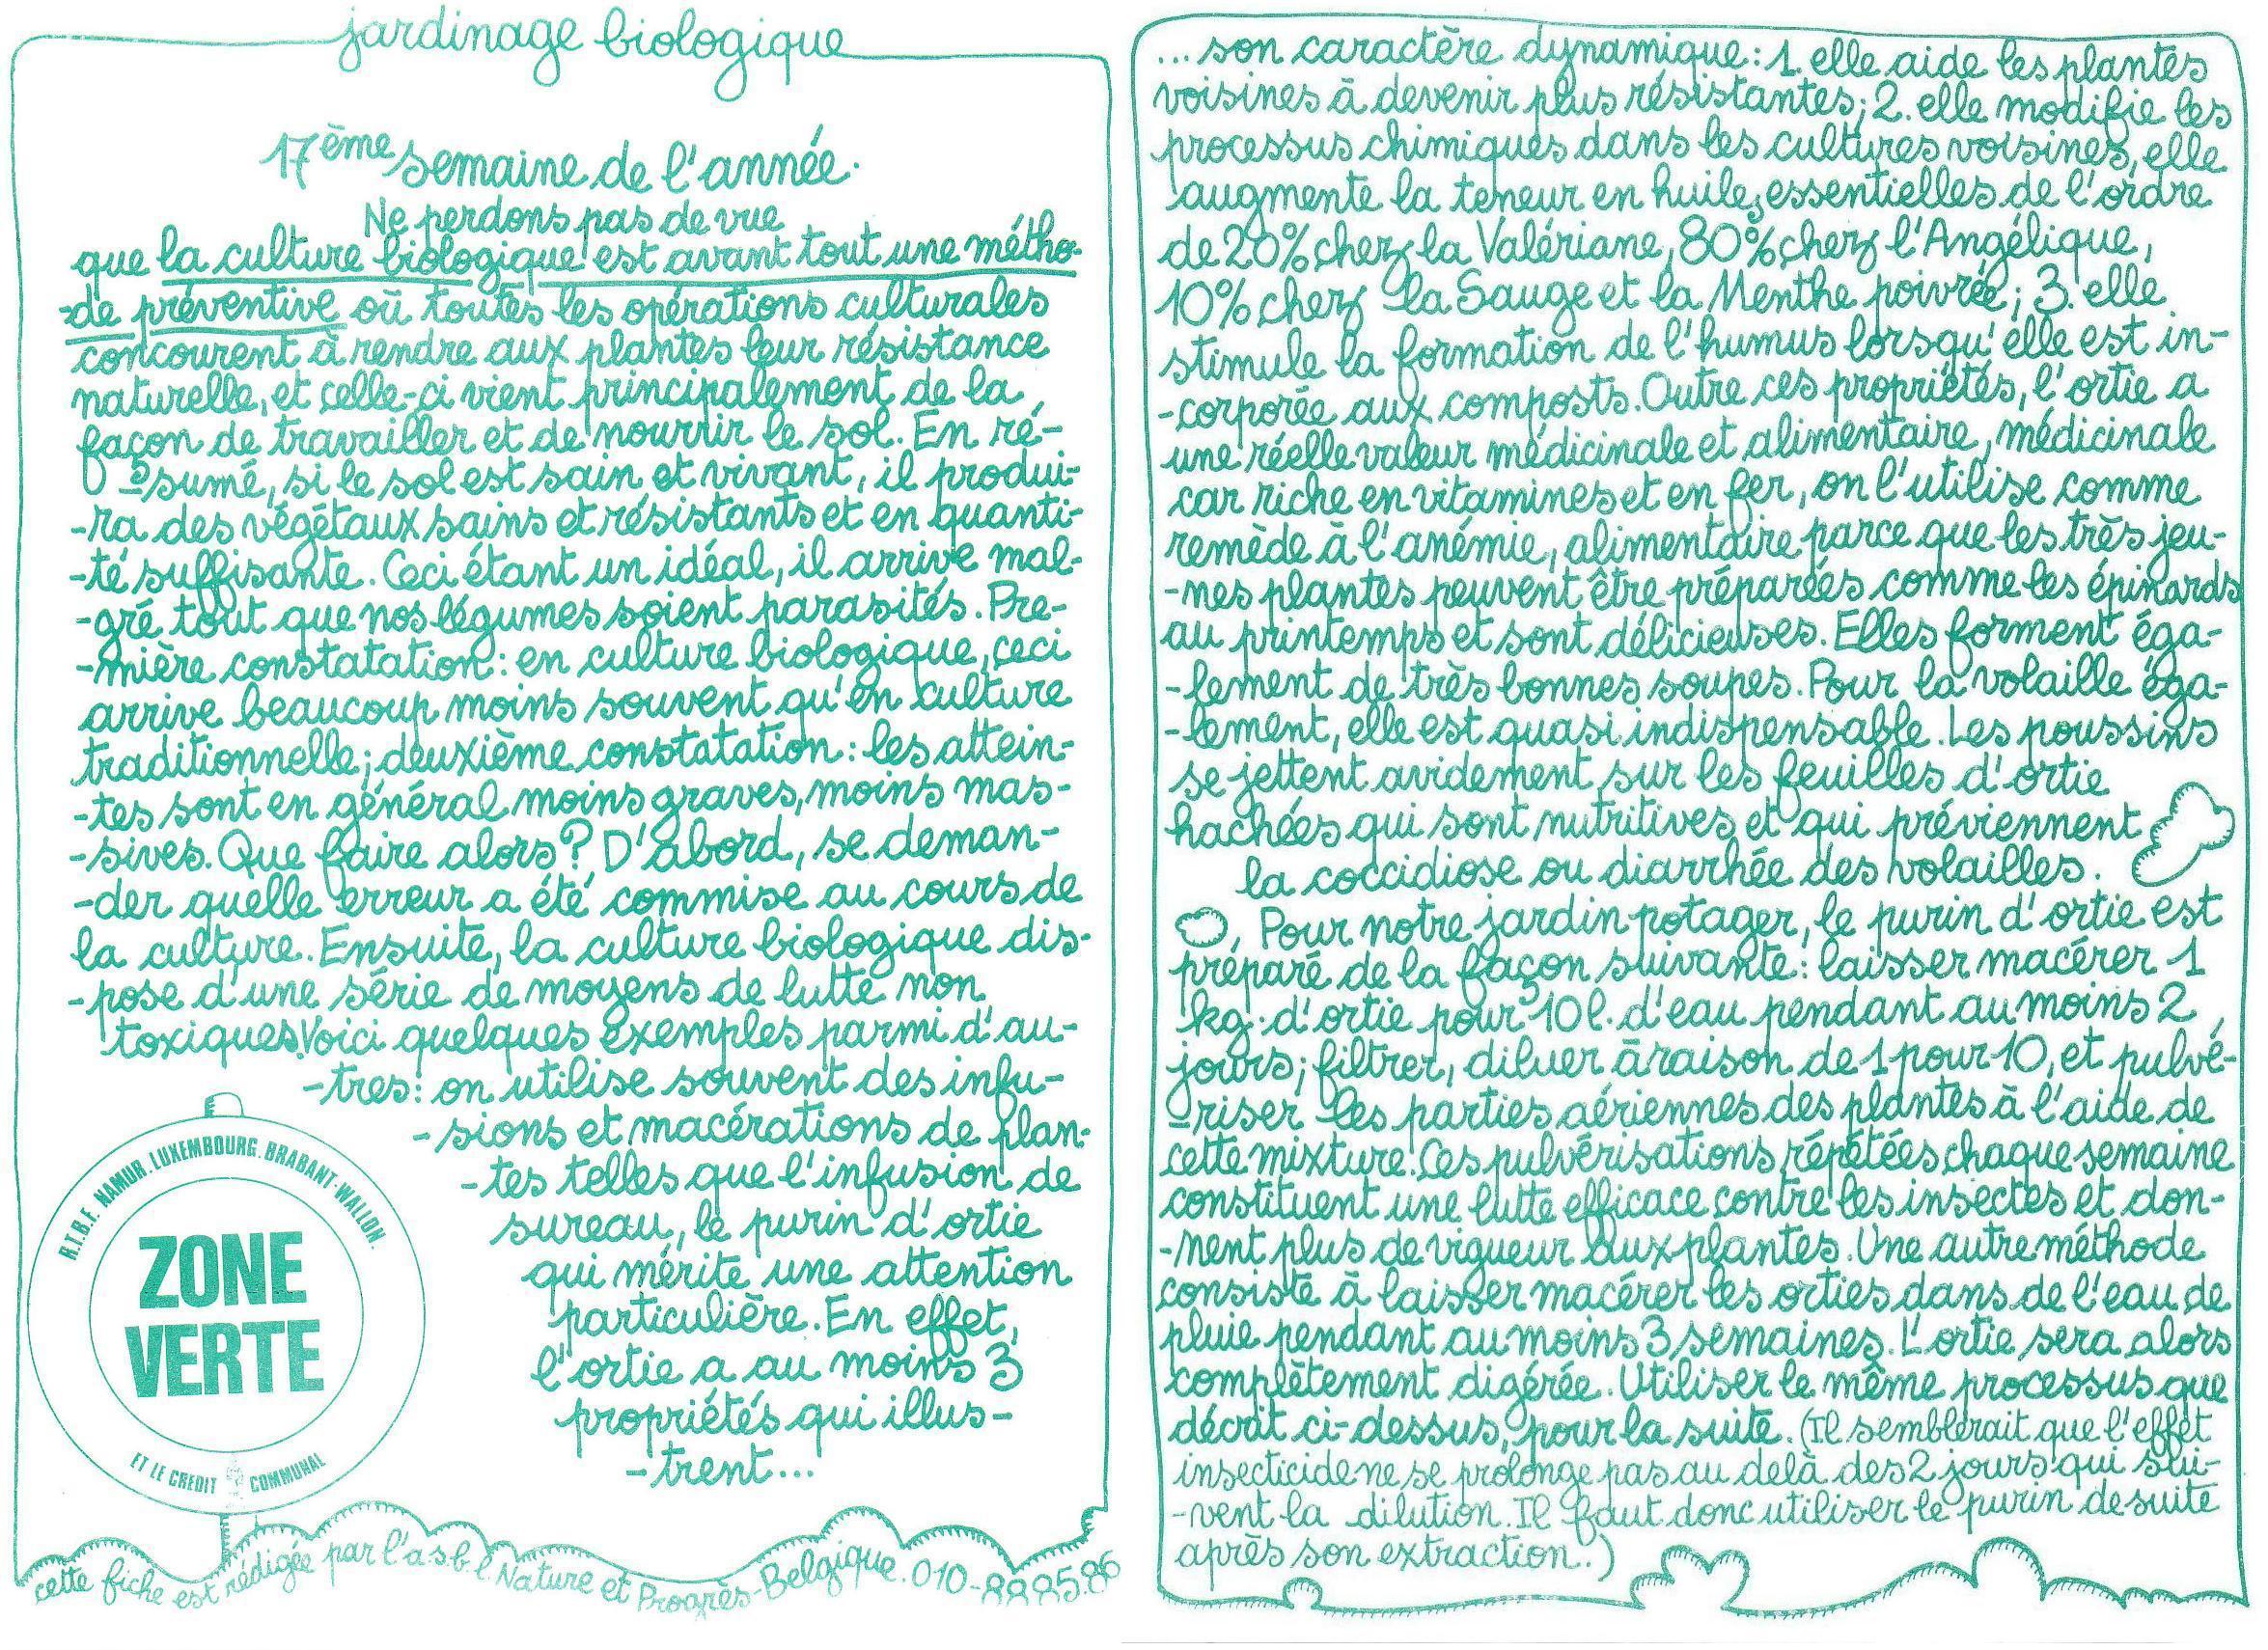 jardinage biologique
17ème semaine de l'année.
Ne perdons pas de vue
que la culture biologique est avant tout une métho-
-de préventive où toutes les opérations culturales
concourent à rendre aux plantes leur résistance
naturelle, et celle-ci vient principalement de la
façon de travailler et de nourrir le sol. En ré-
-sumé, si le sol est sain et vivant, il produi-
-ra des végétaux sains et résistants et en quanti-
-té suffisante. Ceci étant un idéal, il arrive mal-
-gré tout que nos légumes soient parasités. Pre-
-mière constatation : en culture biologique, ceci
arrive beaucoup moins souvent qu'en culture
traditionnelle; deuxième constatation : les attein-
-tes sont en général moins graves, moins mas-
-sives. Que faire alors? D'abord, se deman-
-der quelle erreur a été commise au cours de
la culture. Ensuite, la culture biologique dis-
-pose d'une série de moyens de lutte non
toxiques. Voici quelques exemples parmi d'au-
-tres: on utilise souvent des infu-
-sions et macérations de plan-
-tes telles que l'infusion de
sureau, le purin d'ortie
qui mérite une attention
particulière. En effet,
l'ortie a au moins 3
propriétés qui illus-
-trent...
R.T.B.F. NAMUR. LUXEMBOURG. BRABANT-WALLON.
ZONE
VERTE
ET LE CREDIT COMMUNAL
cette fiche est rédigée par l'a.s.b.l. Nature et Progrès-Belgique. 010-88.85.86
... son caractère dynamique : 1. elle aide les plantes
voisines à devenir plus résistantes; 2. elle modifie les
processus chimiques dans les cultures voisines, elle
augmente la teneur en huiles essentielles de l'ordre
de 20% chez la Valériane, 80% chez l'Angélique,
10% chez la Sauge et la Menthe poivrée; 3. elle
stimule la formation de l'humus lorsqu'elle est in-
-corporée aux composts. Outre ces propriétés, l'ortie a
une réelle valeur médicinale et alimentaire, médicinale
car riche en vitamines et en fer, on l'utilise comme
remède à l'anémie, alimentaire parce que les très jeu-
-nes plantes peuvent être préparées comme les épinards
au printemps et sont délicieuses. Elles forment éga-
-lement de très bonnes soupes. Pour la volaille éga-
-lement, elle est quasi indispensable. Les poussins
se jettent avidement sur les feuilles d'ortie
hachées qui sont nutritives et qui préviennent
la coccidiose ou diarrhée des volailles.
Pour notre jardin potager, le purin d'ortie est
préparé de la façon suivante : laisser macérer 1
kg. d'ortie pour 10 l. d'eau pendant au moins 2
jours; filtrer, diluer à raison de 1 pour 10, et pulvé-
-riser les parties aériennes des plantes à l'aide de
cette mixture. Ces pulvérisations répétées chaque semaine
constituent une lutte efficace contre les insectes et don-
-nent plus de vigueur aux plantes. Une autre méthode
consiste à laisser macérer les orties dans de l'eau de
pluie pendant au moins 3 semaines. L'ortie sera alors
complètement digérée. Utiliser le même processus que
décrit ci-dessus, pour la suite. (Il semblerait que l'effet
insecticide ne se prolonge pas au delà des 2 jours qui sui-
-vent la dilution. Il faut donc utiliser le purin de suite
après son extraction.)